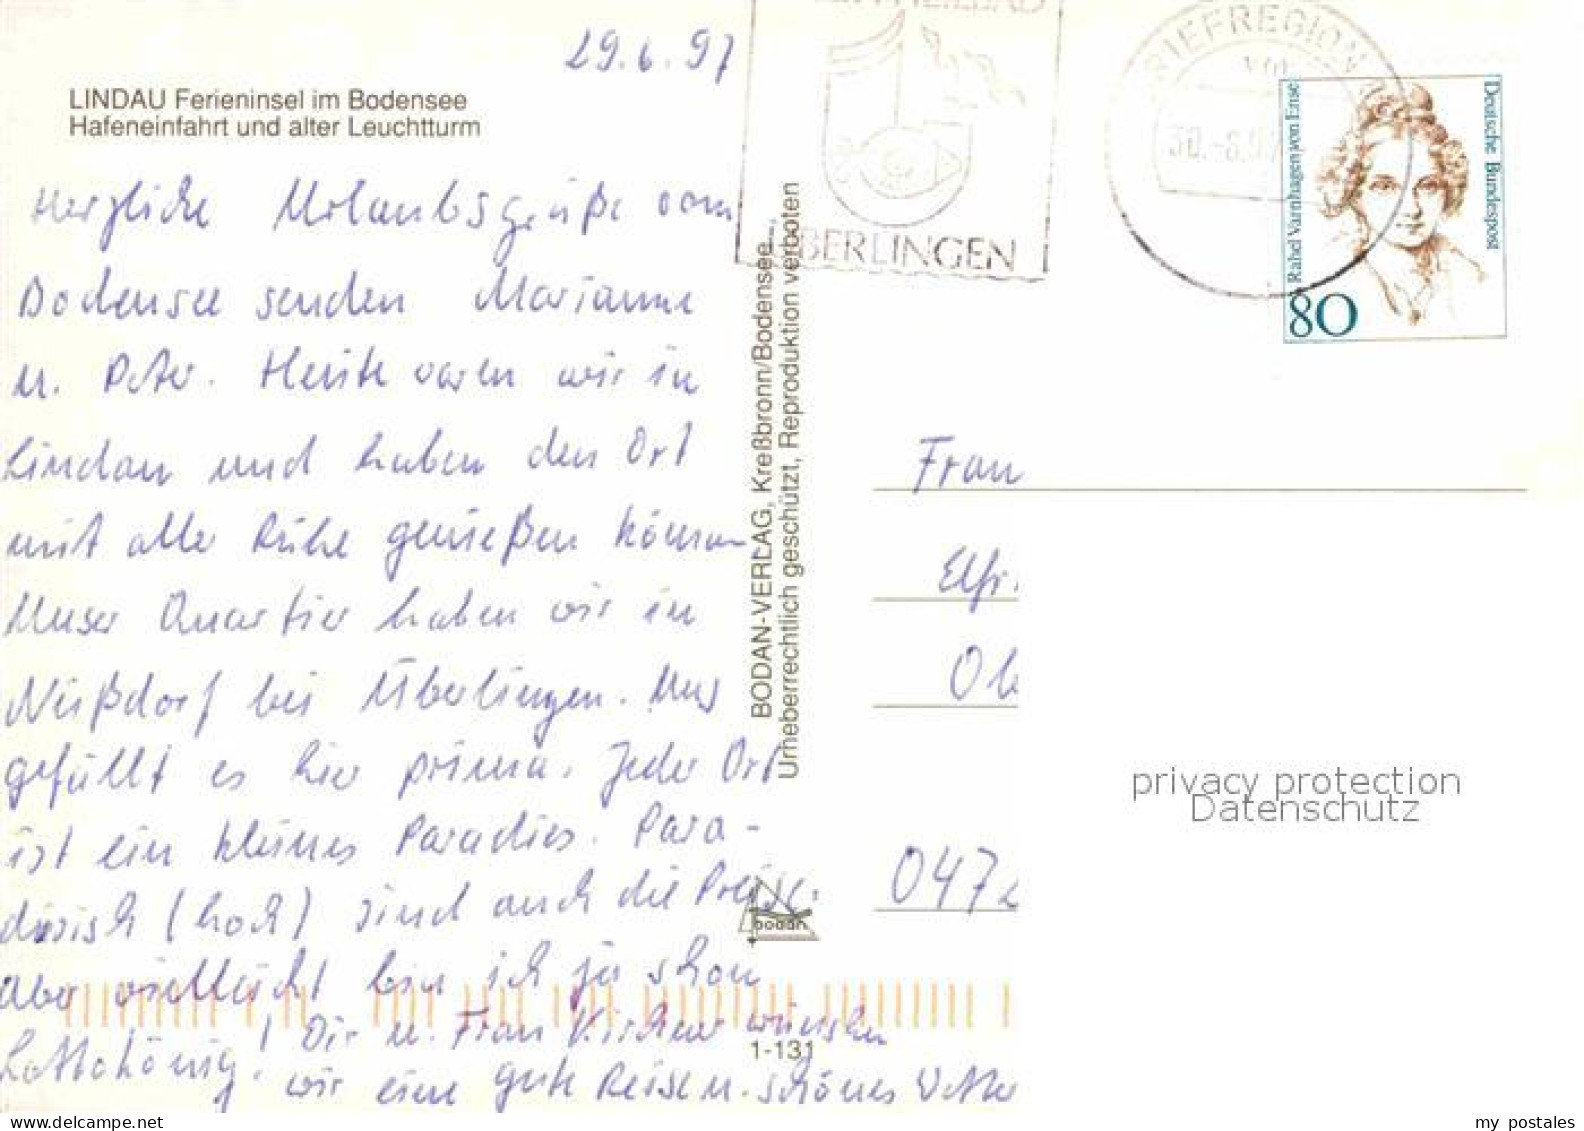 29.6.97
LINDAU Ferieninsel im Bodensee
Hafeneinfahrt und alter Leuchtturm
Herzliche Urlaubsgrüße vom
Bodensee senden Marianne
u. Peter. Heute waren wir in
Lindau und haben den Ort
mit aller Ruhe genießen können
Unser Quartier haben wir in
Nußdorf bei Überlingen. Uns
gefällt es hier prima. Jeder Ort
ist ein kleines Paradies. Para-
disisch (hoch) sind auch die Preise.
Aber vielleicht bin ich ja schon
Lottokönig! Dir u. Frau Kirchner wünschen
wir eine gute Reise u. schönes Wetter
BODAN-VERLAG, Kreßbronn/Bodensee
Urheberrechtlich geschützt, Reproduktion verboten
bodan
1-131
ÜBERLINGEN
BRIEFREGION
30.-6.97
Deutsche Bundespost
Rahel Varnhagen von Ense
80
Frau
Elfi
Ob
0472
privacy protection
Datenschutz
my postales